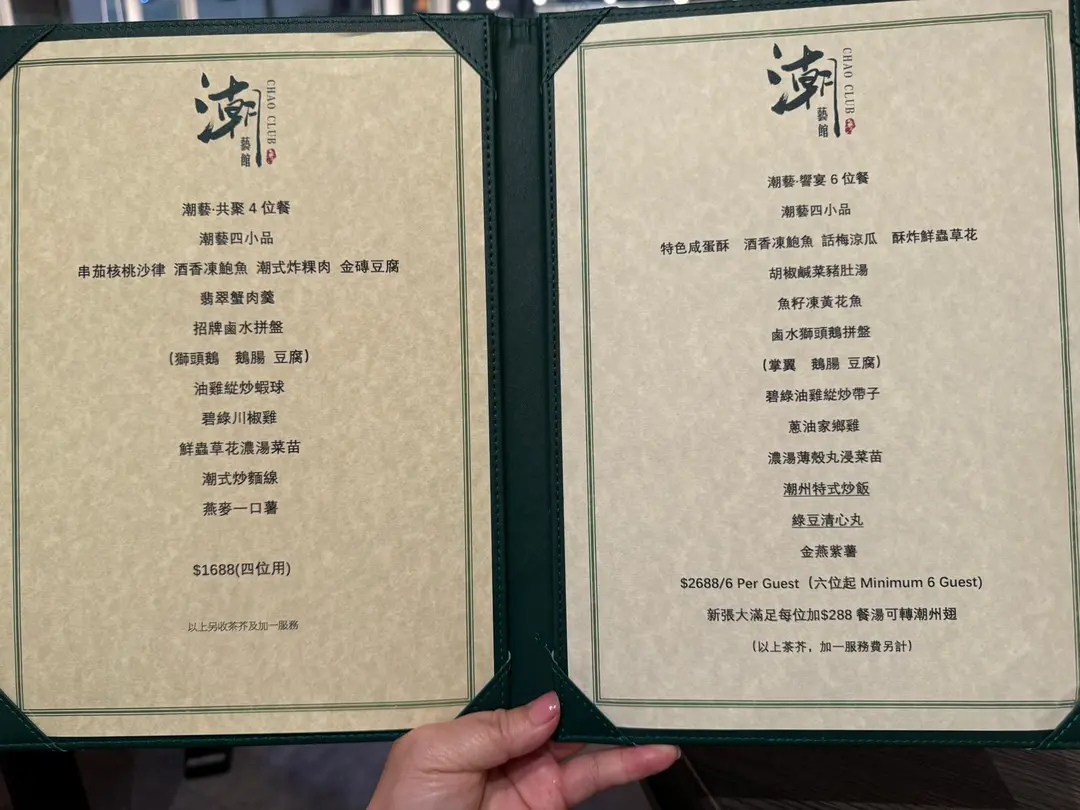 潮
CHAO CLUB
藝館
潮藝·共聚 4 位餐
潮藝四小品
串茄核桃沙律 酒香凍鮑魚 潮式炸粿肉 金磚豆腐
翡翠蟹肉羹
招牌鹵水拼盤
(獅頭鵝 鵝腸 豆腐)
油雞縱炒蝦球
碧綠川椒雞
鮮蟲草花濃湯菜苗
潮式炒麵線
燕麥一口薯
$1688(四位用)
以上另收茶芥及加一服務
潮
CHAO CLUB
藝館
潮藝·響宴 6 位餐
潮藝四小品
特色咸蛋酥 酒香凍鮑魚 話梅涼瓜 酥炸鮮蟲草花
胡椒鹹菜豬肚湯
魚籽凍黃花魚
鹵水獅頭鵝拼盤
(掌翼 鵝腸 豆腐)
碧綠油雞縱炒帶子
蔥油家鄉雞
濃湯薄殼丸浸菜苗
潮州特式炒飯
綠豆清心丸
金燕紫薯
$2688/6 Per Guest (六位起 Minimum 6 Guest)
新張大滿足每位加$288 餐湯可轉潮州翅
(以上茶芥，加一服務費另計)